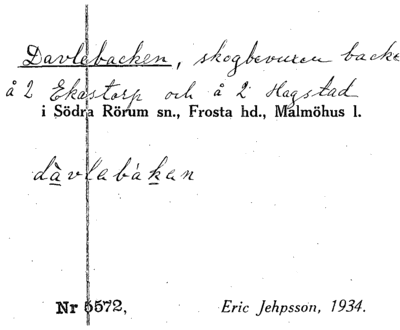 Davlebacken, skogbevuxen backe
å 2 Ekastorp och å 2 Hagstad
i Södra Rörum sn., Frosta hd., Malmöhus l.
dàvlabákan
Nr 5572,
Eric Jehpsson, 1934.